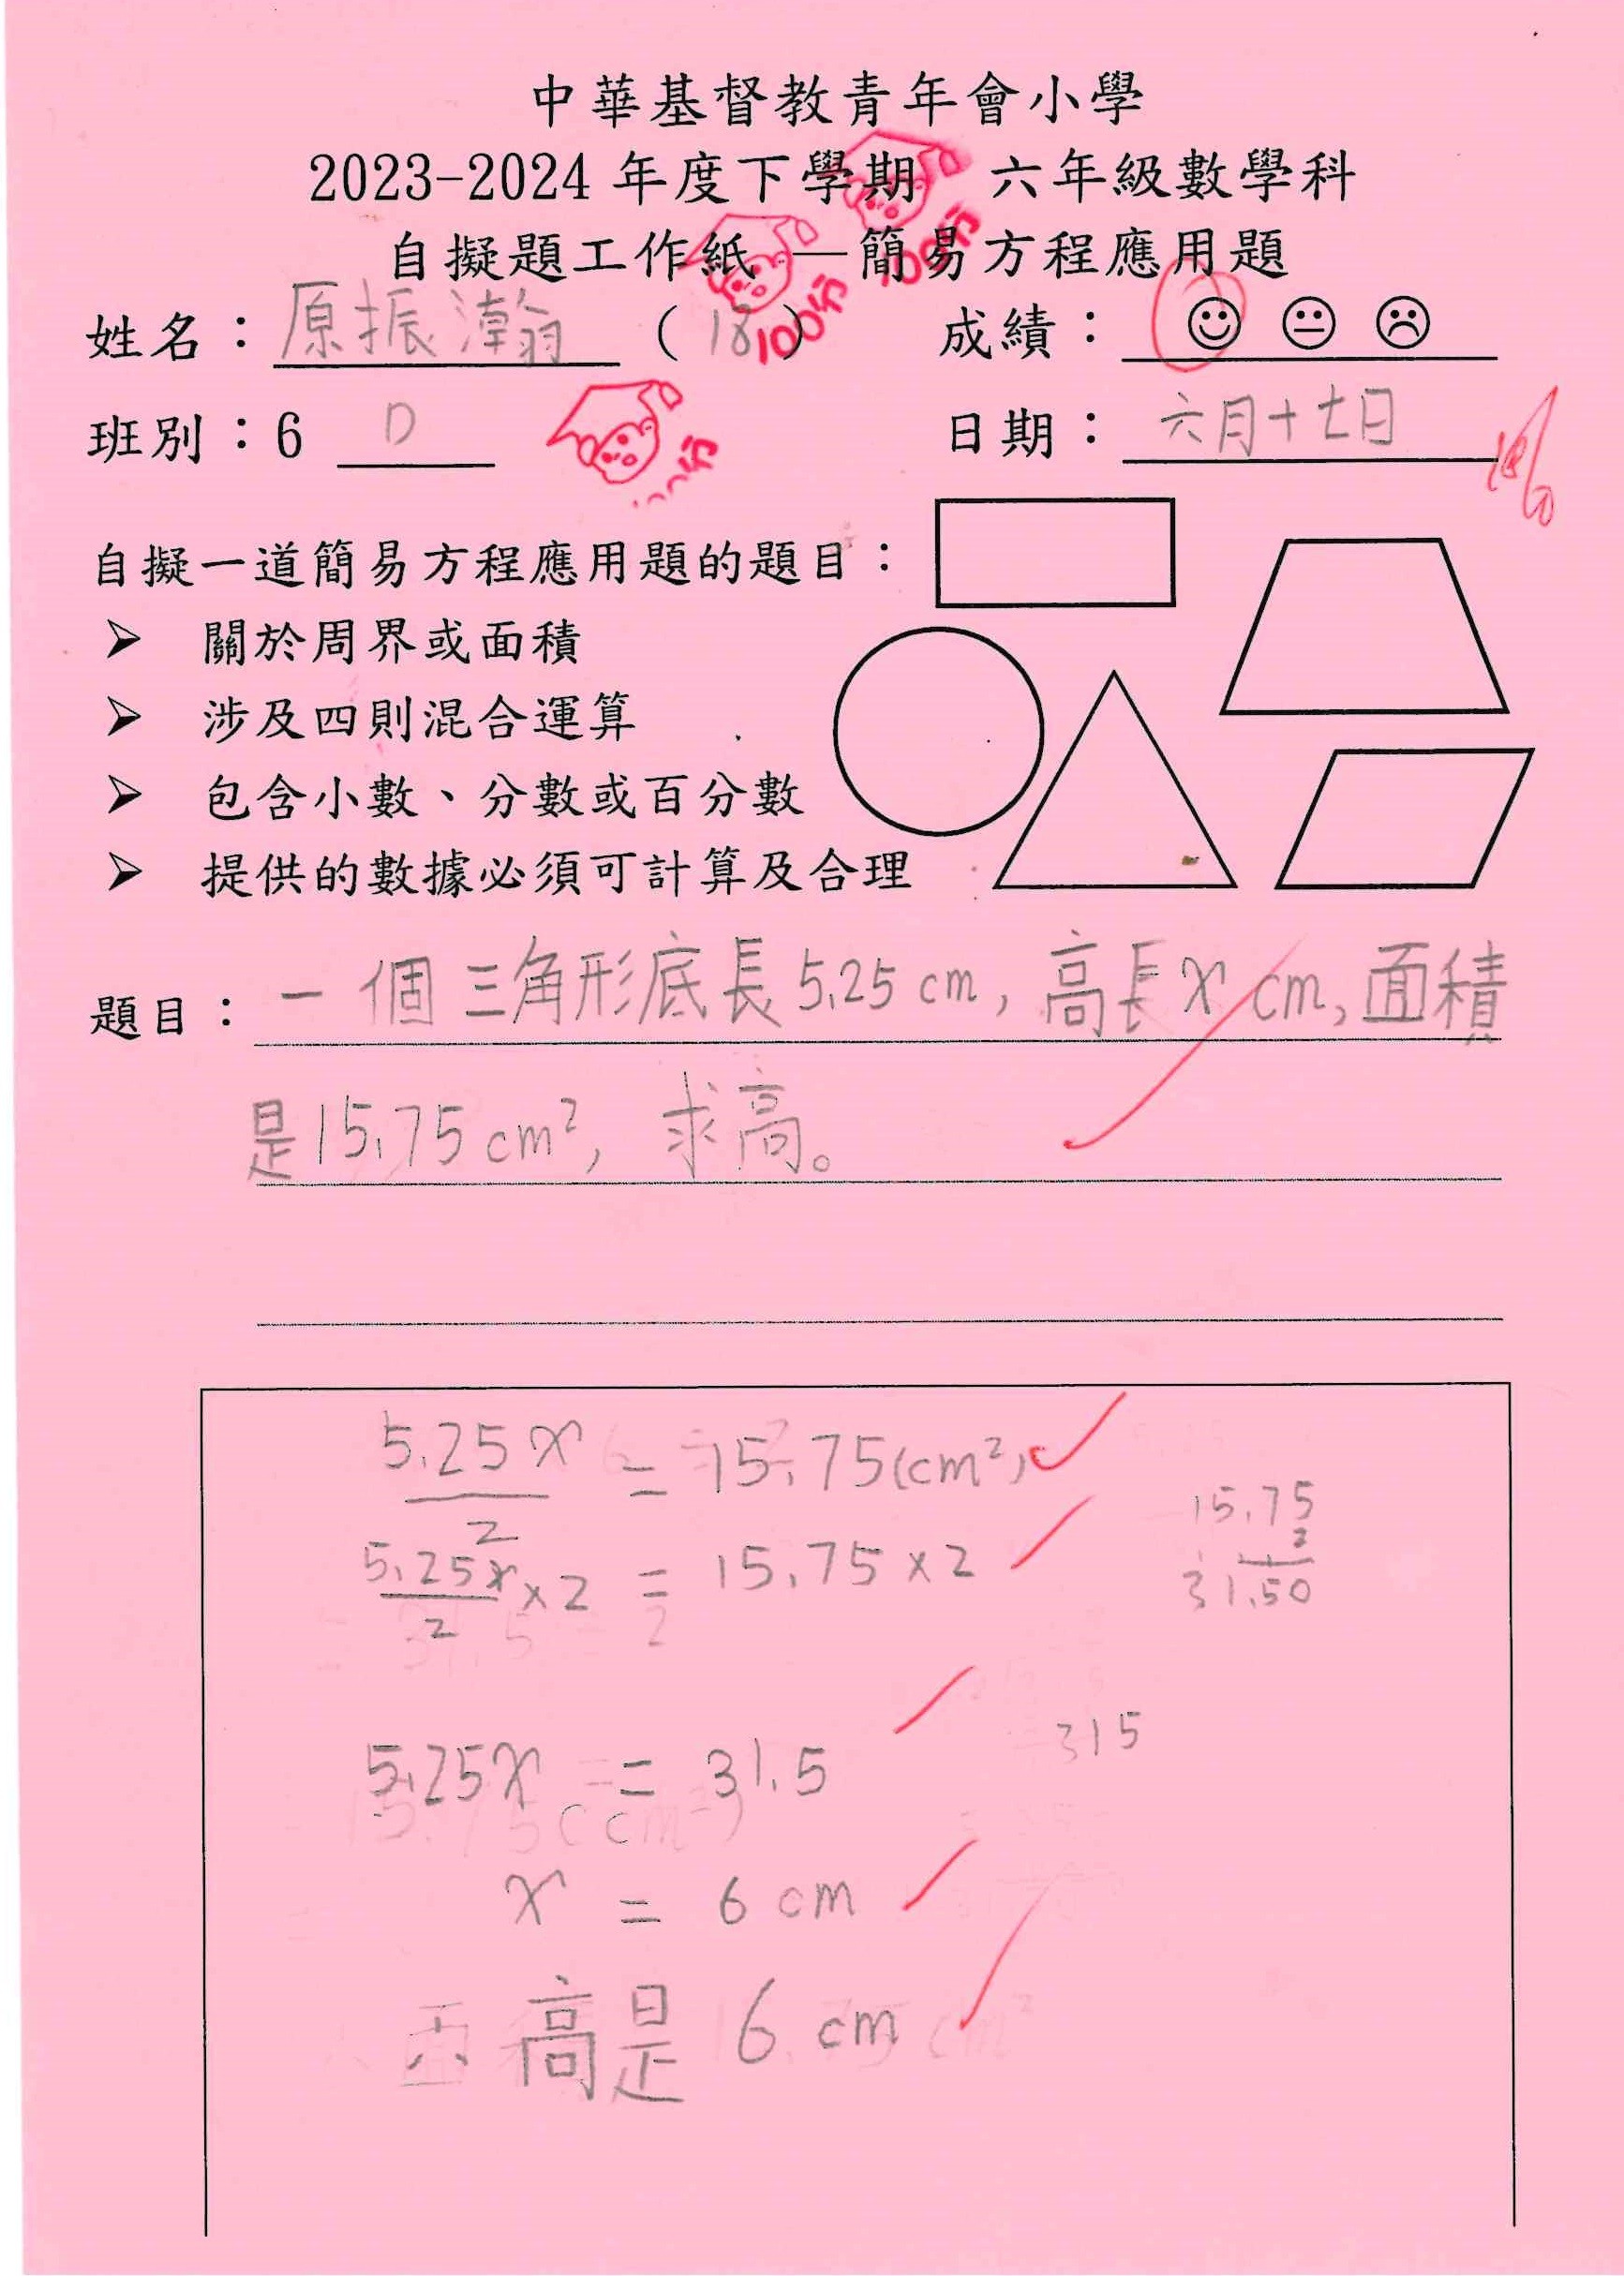 中華基督教青年會小學
2023-2024 年度下學期 六年級數學科
自擬題工作紙 —簡易方程應用題
姓名：原振瀚 ( 18 ) 成績：
100分
100分
班別：6 D 日期：六月十七日
自擬一道簡易方程應用題的題目：
➢ 關於周界或面積
➢ 涉及四則混合運算
➢ 包含小數、分數或百分數
➢ 提供的數據必須可計算及合理
題目：一個三角形底長5.25 cm, 高長x cm, 面積
是15.75 cm², 求高。
5.25x/2 = 15.75(cm²)
15.75
2
31.50
5.25x/2 ×2 = 15.75 ×2
315
5.25x = 31.5
x = 6 cm
∴ 高是 6 cm